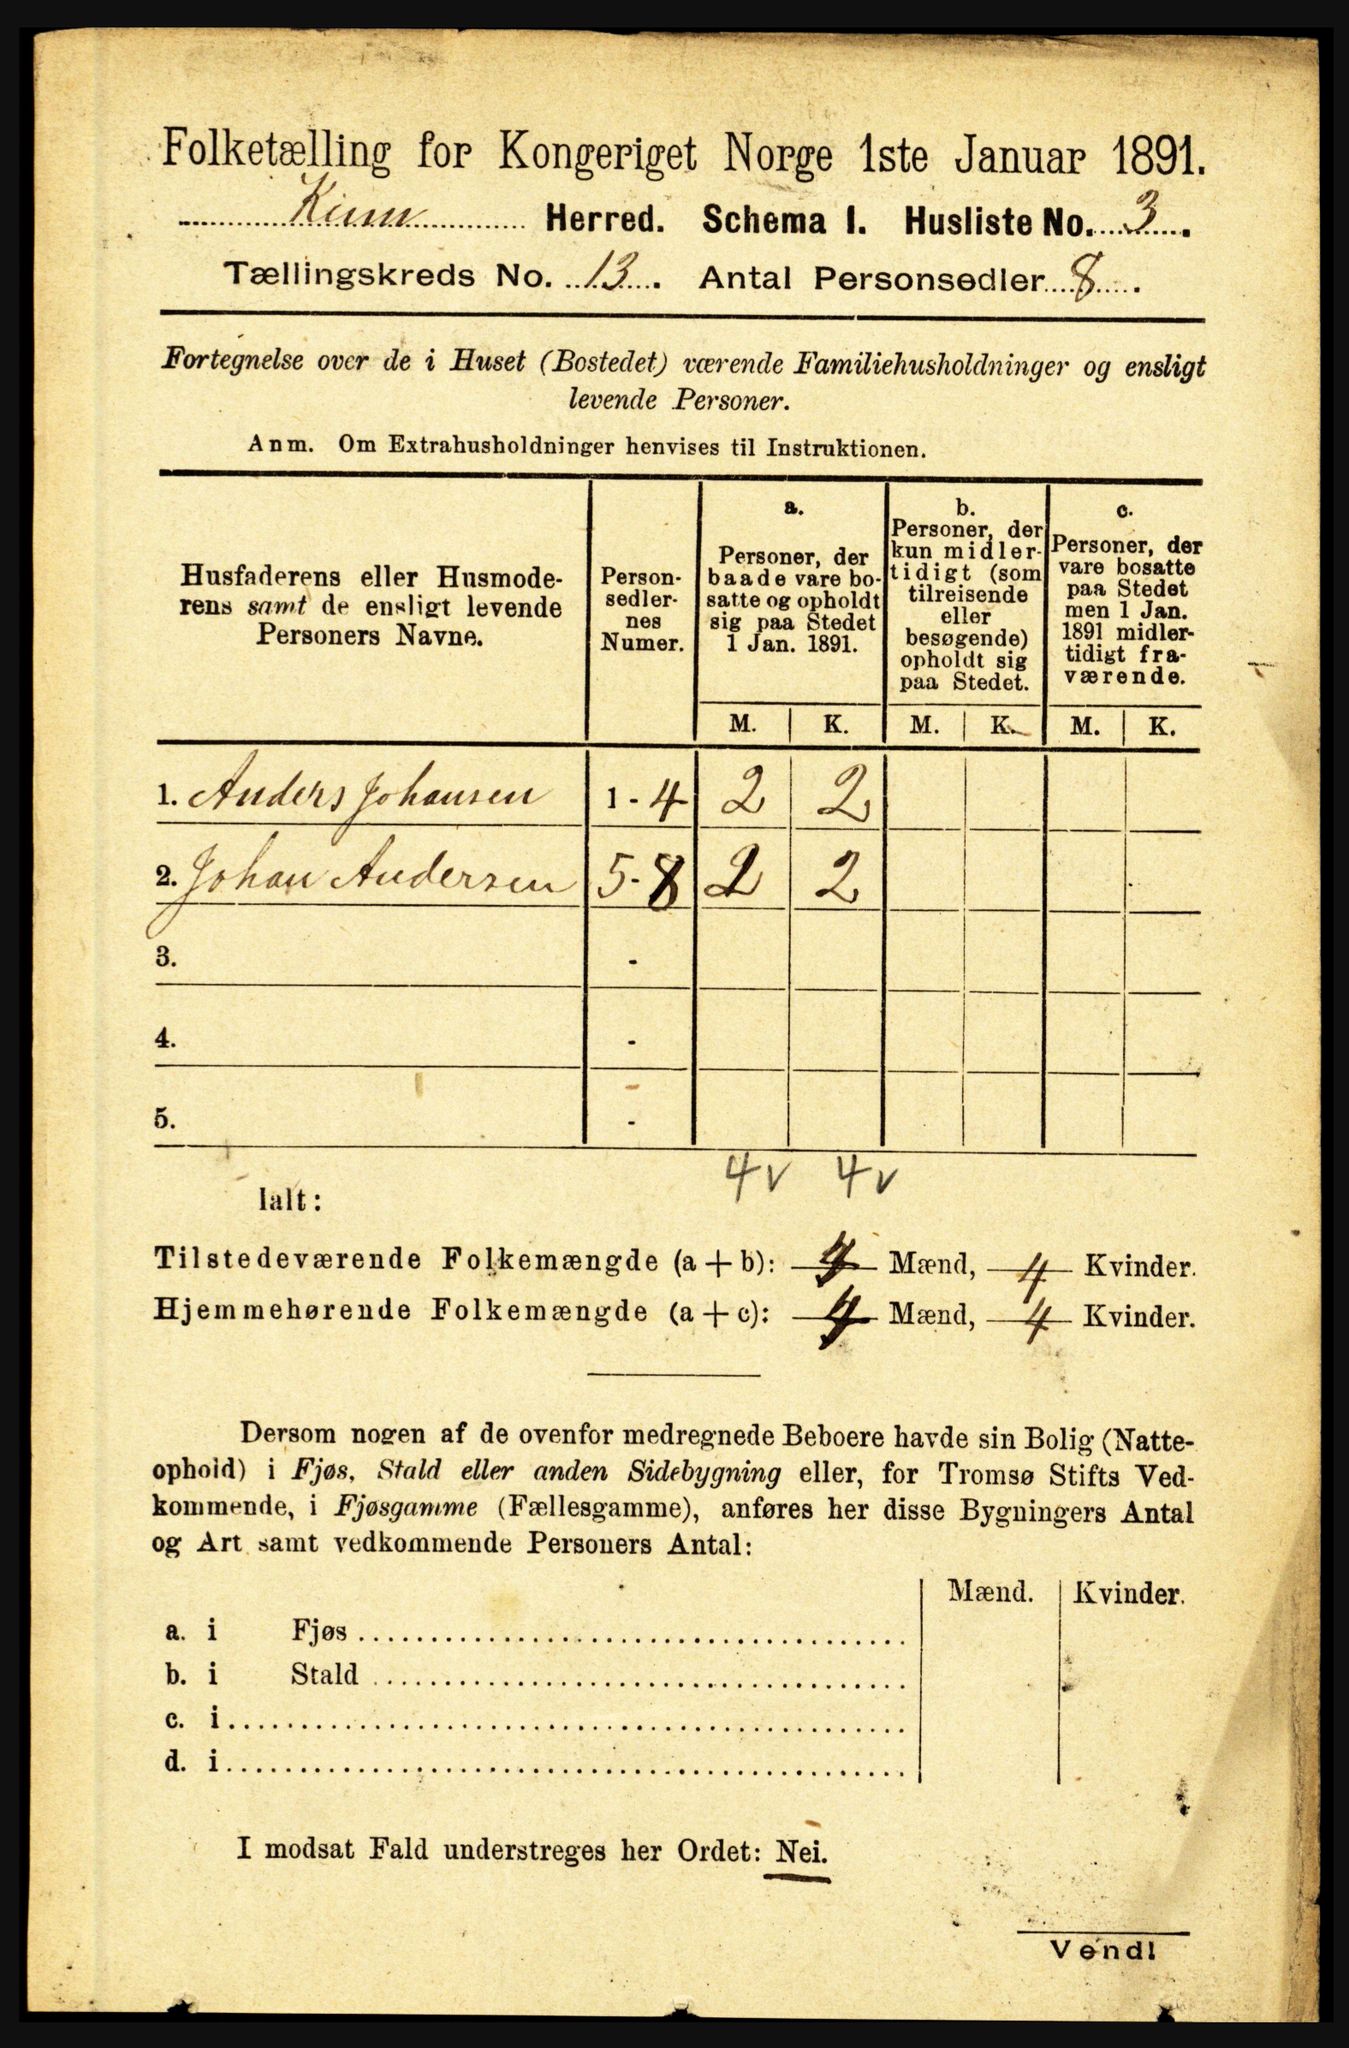 Folketælling for Kongeriget Norge 1ste Januar 1891.
Kinn Herred. Schema I. Husliste No. 3.
Tællingskreds No. 13. Antal Personsedler 8.
Fortegnelse over de i Huset (Bostedet) værende Familiehusholdninger og ensligt
levende Personer.
Anm. Om Extrahusholdninger henvises til Instruktionen.
Husfaderens eller Husmode-
rens samt de ensligt levende
Personers Navne.
Person-
sedler-
nes
Numer.
a.
Personer, der
baade vare bo-
satte og opholdt
sig paa Stedet
1 Jan. 1891.
b.
Personer, der
kun midler-
tidigt (som
tilreisende
eller
besøgende)
opholdt sig
paa Stedet.
c.
Personer, der
vare bosatte
paa Stedet
men 1 Jan.
1891 midler-
tidigt fra-
værende.
M. K. M. K. M. K.
1. Anders Johansen 1-4 2 2
2. Johan Andersen 5-8 2 2
3. -
4. -
5. -
4v 4v
Ialt:
Tilstedeværende Folkemængde (a+b): 4 Mænd, 4 Kvinder.
Hjemmehørende Folkemængde (a+c): 4 Mænd, 4 Kvinder.
Dersom nogen af de ovenfor medregnede Beboere havde sin Bolig (Natte-
ophold) i Fjøs, Stald eller anden Sidebygning eller, for Tromsø Stifts Ved-
kommende, i Fjøsgamme (Fællesgamme), anføres her disse Bygningers Antal
og Art samt vedkommende Personers Antal:
Mænd. Kvinder.
a. i Fjøs
b. i Stald
c. i
d. i
I modsat Fald understreges her Ordet: Nei.
Vend!